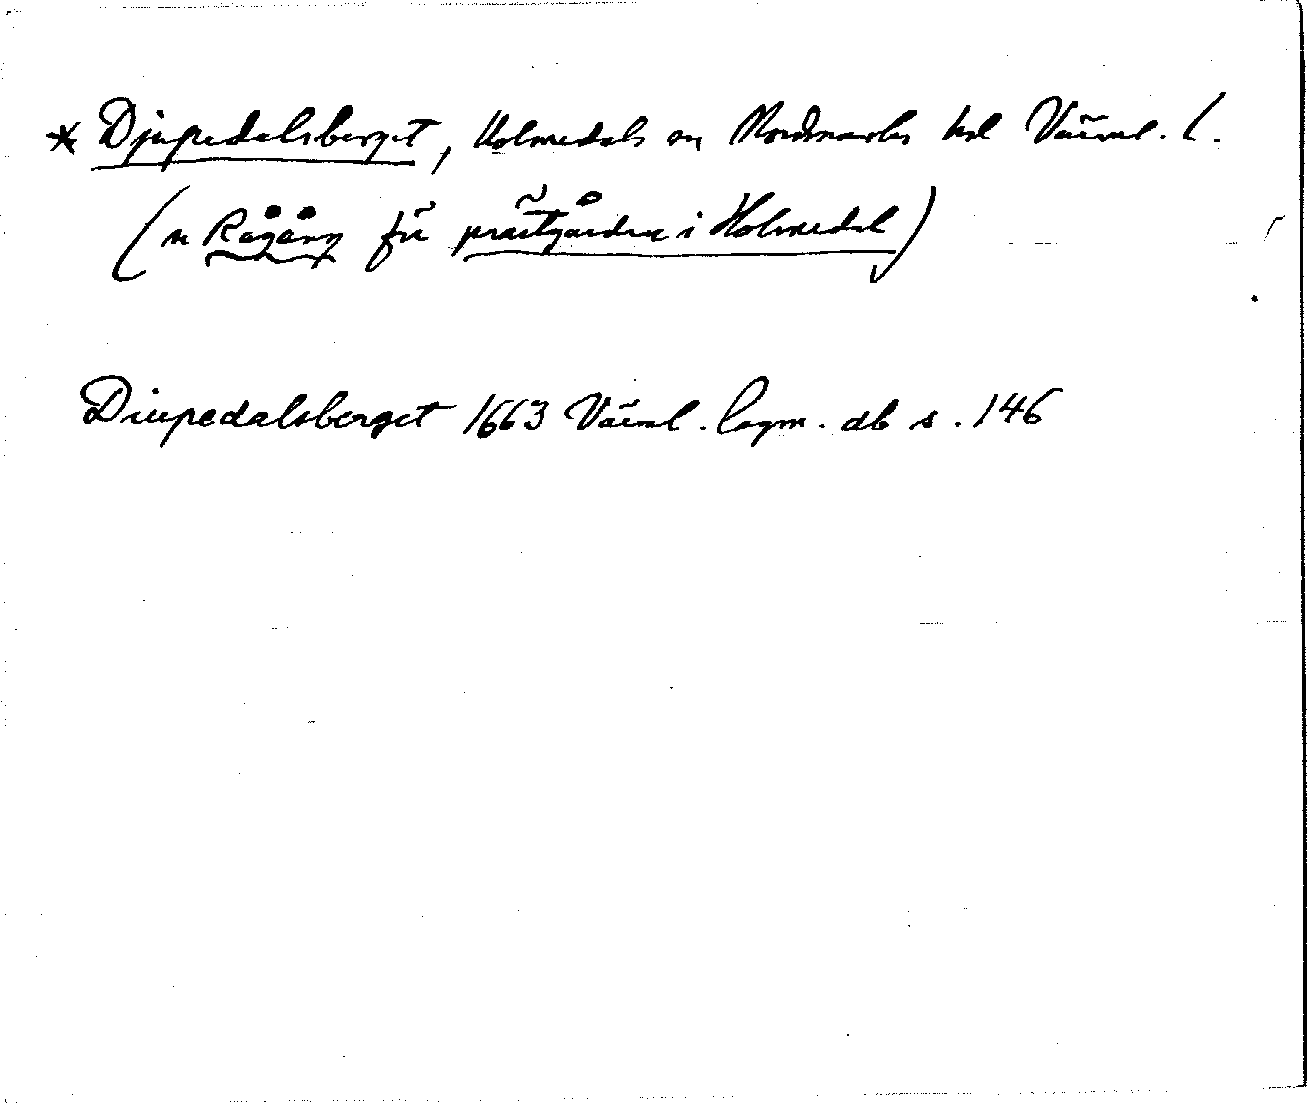 * Djupedalsberget, Holmedals sn Nordmarks hd Värml. l.
(n Rågång för prästgården i Holmedal)
Diupedalsberget 1663 Värml. lagm. db s. 146